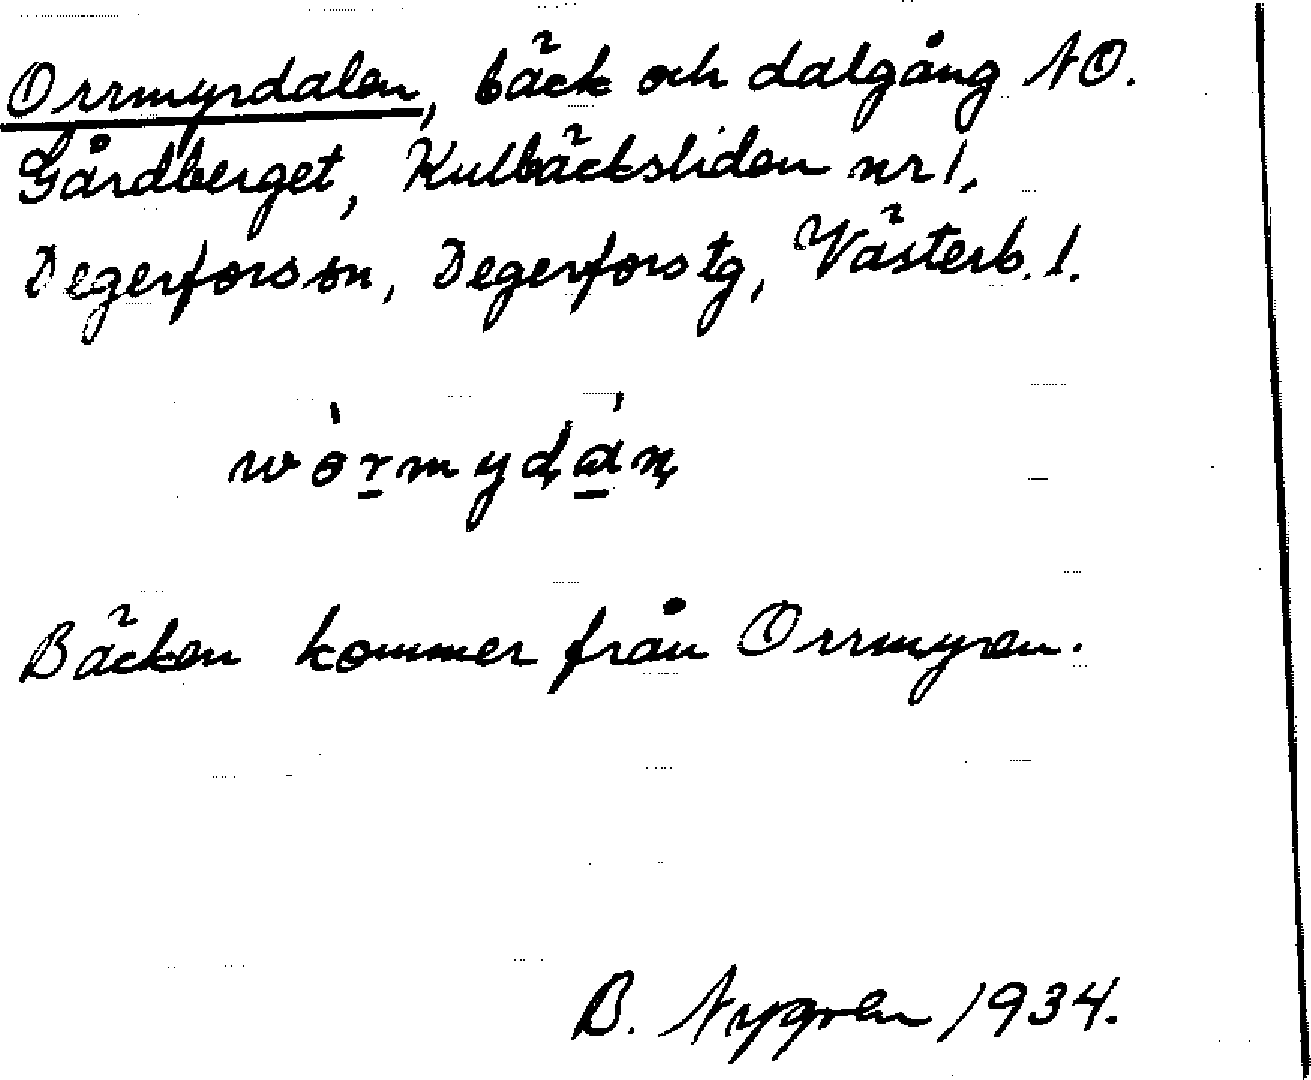 Orrmyrdalen, bäck och dalgång NO.
Gårdberget, Kulbäcksliden nr 1,
Degerfors sn, Degerfors tg, Västerb. l.
wòrmydán
Bäcken kommer från Orrmyren.
B. Nygren 1934.